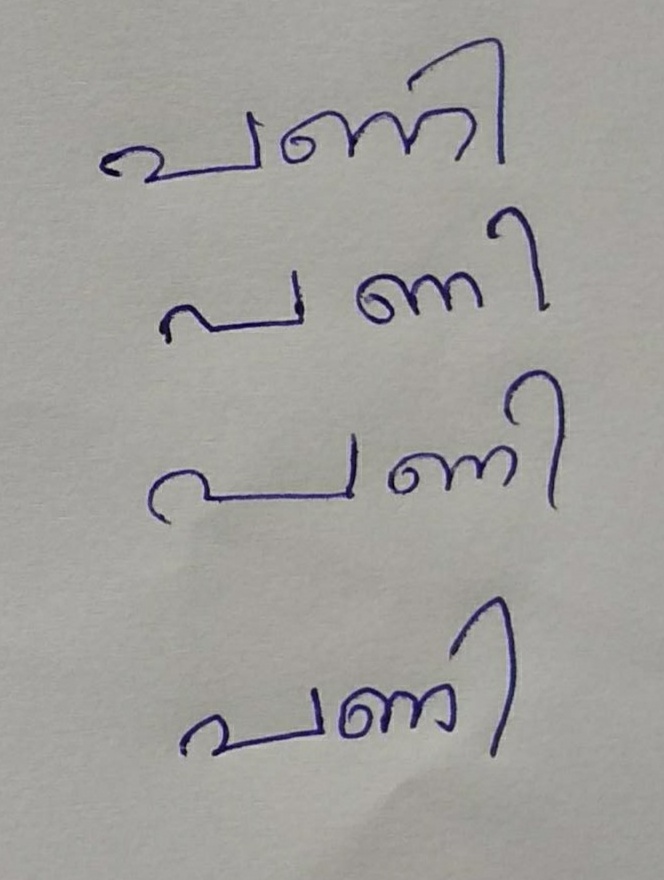 പണി
പണി
പണി
പണി